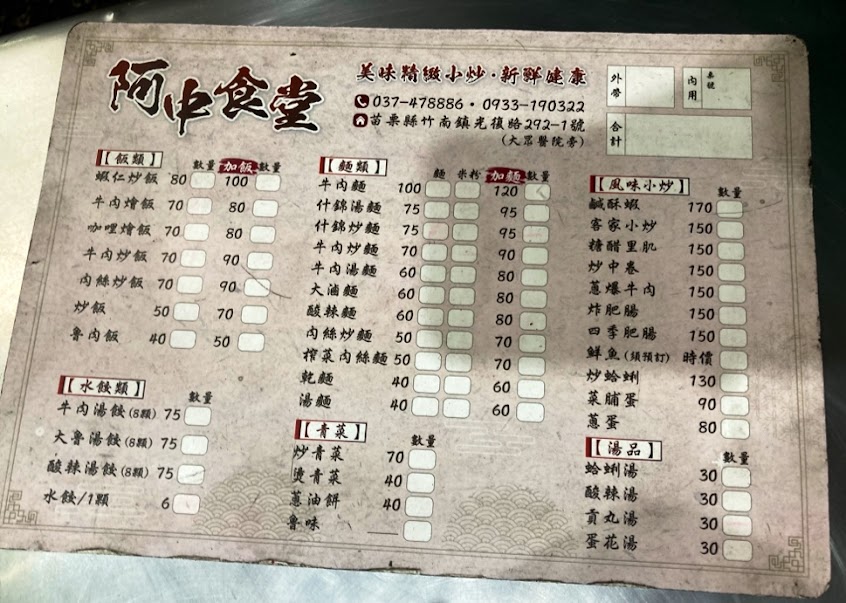 阿中食堂
美味精緻小炒·新鮮健康
037-478886·0933-190322
苗栗縣竹南鎮光復路292-1號
(大眾醫院旁)
外帶
內用 桌號
合計
【飯類】 數量 加飯 數量
蝦仁炒飯 80 100
牛肉燴飯 70 80
咖哩燴飯 70 80
牛肉炒飯 70 90
肉絲炒飯 70 90
炒飯 50 70
魯肉飯 40 50
【水餃類】 數量
牛肉湯餃(8顆) 75
大魯湯餃(8顆) 75
酸辣湯餃(8顆) 75
水餃/1顆 6
【麵類】 麵 米粉 加麵 數量
牛肉麵 100 120
什錦湯麵 75 95
什錦炒麵 75 95
牛肉炒麵 70 90
牛肉湯麵 60 80
大滷麵 60 80
酸辣麵 60 80
肉絲炒麵 50 70
榨菜肉絲麵 50 70
乾麵 40 60
湯麵 40 60
【青菜】 數量
炒青菜 70
燙青菜 40
蔥油餅 40
魯味
【風味小炒】 數量
鹹酥蝦 170
客家小炒 150
糖醋里肌 150
炒中卷 150
蔥爆牛肉 150
炸肥腸 150
四季肥腸 150
鮮魚(須預訂) 時價
炒蛤蜊 130
菜脯蛋 90
蔥蛋 80
【湯品】 數量
蛤蜊湯 30
酸辣湯 30
貢丸湯 30
蛋花湯 30